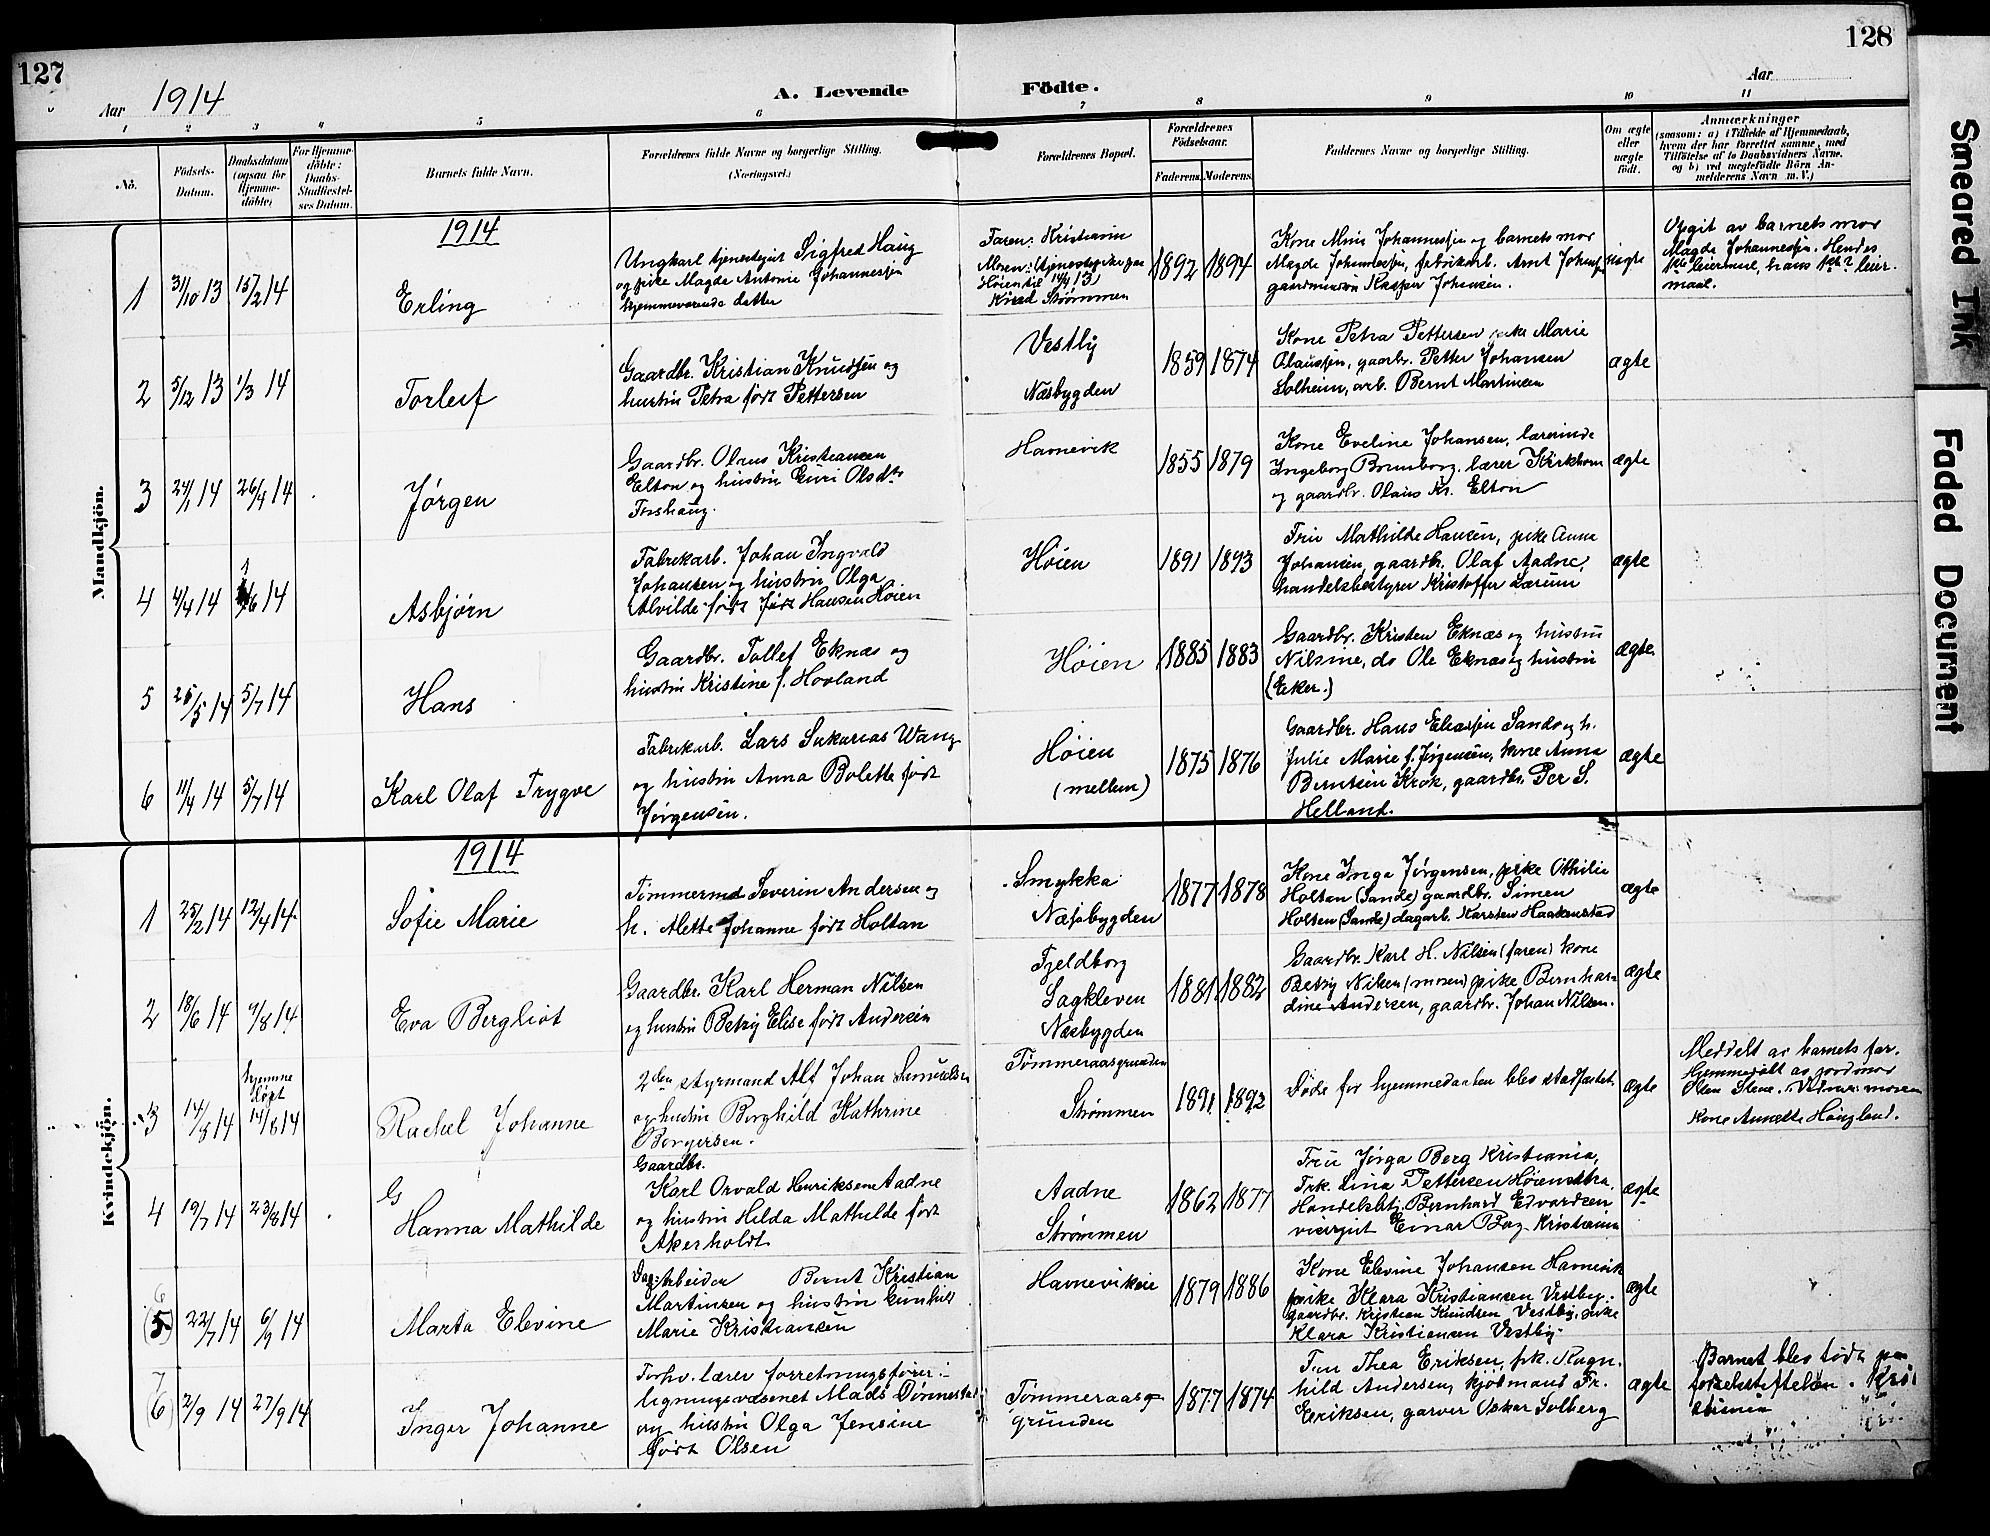 127
128
Aar 1914
A. Levende
Födte.
Aar
1 2 3 4 5 6 7 8 9 10 11
No.
Födsels-
Datum.
Daabsdatum
(ogsaa for
Hjemme-
döbte)
For Hjemme-
döbte:
Daabs-
Stadfæstel-
ses Datum.
Barnets fulde Navn.
Forældrenes fulde Navne og borgerlige Stilling.
(Næringsvei.)
Forældrenes Bopæl.
Forældrenes
Födselsaar.
Faderens.
Moderens.
Faddernes Navne og borgerlige Stilling.
Om ægte
eller
uægte
födt.
Anmærkninger
(saasom: a) i Tilfælde af Hjemmedaab,
hvem der har forrettet samme, med
Tilföielse af to Daabsvidners Navne,
og b) ved uægtefödte Börn An-
melderens Navn m. V.)
Mandkjön.
1914
1
31/10 13
15/2 14
Erling
Ungkarl tjenestegut Sigfred Haug
og pike Magda Antonie Johannessen
hjemmeværende datter
Faren: Kristiania
Moren: tjenestepike paa
Høien til 14/4 13)
Strømmen
1892
1894
Kone Mina Johannessen og barnets mor
Magda Johannessen, fabrikarb. Arnt Johansen
gaardmand Kasper Johansen.
uægte
Opgit av barnets mor
Magda Johannessen. Hendes
1ste leiermaal, hans 1ste? leier-
maal.
2
5/12 13
1/3 14
Torleif
Gaardbr. Kristian Knudsen og
hustru Petra født Pettersen
Vestby
Næsbygden
1859
1874
Kone Petra Pettersen pike Marie
Olaussen, gaarbr. Petter Johansen
Solheim, arb. Bernt Martinsen
ægte
3
24/1 14
26/4 14
Jørgen
Gaardbr. Olaus Kristiansen
Elton og hustru Guri Olsdtr
Torshaug.
Havnevik
1855
1879
Kone Eveline Johansen, lærerinde
Ingeborg Brunborg, lærer Kirkhorn
og gaardbr. Olaus Kr. Elton
ægte
4
4/4 14
1/6 14
Asbjørn
Fabrikarb. Johan Ingvald
Johansen og hustru Olga
Alvilde født født Hansen Høien
Høien
1891
1893
Fru Mathilde Hansen, pike Anna
Johansen, gaardbr. Olaf Aadne,
handelsbestyrer Kristoffer Lærum
ægte
5
25/5 14
5/7 14
Hans
Gaardbr. Tollef Eknæs og
hustru Kristine f. Hovland
Høien
1885
1883
Gaardbr. Kristen Eknæs og hustru
Nilsine, do Ole Eknæs og hustru
(Eker.)
ægte
6
11/4 14
5/7 14
Karl Olaf Trygve
Fabrikarb. Lars Sakarias Wang
og hustru Anna Bolette født
Jørgensen.
Høien
(mellem)
1875
1876
Gaardbr. Hans Eliassen Sando og h.
Julie Marie f. Jørgensen, kone Anna
Berntsen Krok, gaardbr. Per S.
Helland.
ægte
Kvindekjön.
1914
1
25/2 14
12/4 14
Sofie Marie
Tømmermd Severin Andersen og
h. Alette Johanne født Holtan
Smykka
Næssbygden
1877
1878
Kone Inga Jørgensen, pike Othilie
Holtan (Sande) gaardbr. Simen
Holtan (Sande) dagarb. Karsten Haakenstad
ægte
2
18/6 14
9/8 14
Eva Bergliot
Gaardbr. Karl Herman Nilsen
og hustru Betsy Elise født Andersen
Fjeldborg
Sagkleven
Næsbygden
1881
1882
Gaardbr. Karl H. Nilsen (faren) kone
Betsy Nilsen (moren) pike Bernhar-
dine Andersen, gaardbr. Johan Nilsen.
ægte
3
14/8 14
hjemme
døpt
14/8 14
Rachel Johanne
2den styrmand Alf Johan Samuelsen
og hustru Borghild Kathrine
Borgersen.
Tømmeraasgrunden
Strømmen
1891
1892
Døde før hjemmedaaben blev stadfæstet.
ægte
Meddelt av barnets far.
Hjemmedøbt av jordmor
Olea Stene. Vidner: moren
Kone Annette Haugland.
4
19/7 14
23/8 14
G
Hanna Mathilde
Gaardbr.
Karl Orvald Henriksen Aadne
og hustru Hilda Mathilde født
Akerholdt
Aadne
Strømmen
1862
1877
Fru Jørga Berg Kristiania,
Frk. Lina Pettersen Høienstra,
Handelsbtj. Bernhard Edvardsen
visergut Einar Berg Kristiania
ægte
6
(5)
22/7 14
6/9 14
Marta Elevine
Dag-Arbeider Bernt Kristian
Martinsen og hustru Gunhild
Marie Kristiansen
Havnevikeie
1879
1886
Kone Elevine Johansen Havnevik
pike Klara Kristiansen Vestby.
gaardbr. Kristian Knudsen Vestby, pike
Klara Kristiansen Vestby.
ægte
7
(6)
2/9 14
27/9 14
Inger Johanne
Forhv. lærer forretningsfører i
ligningsvæsenet Mads Dønnestad
og hustru Olga Jensine
født Olsen
Tømmeraas-
grunden
1877
1874
Fru Thea Eriksen, frk. Ragn-
hild Andersen, kjøbmand Fr.
Eriksen, garver Oskar Solberg
ægte
Barnet blev født paa
fødselsstiftelsen. Kri-
stiania
Smeared Ink
Faded Document